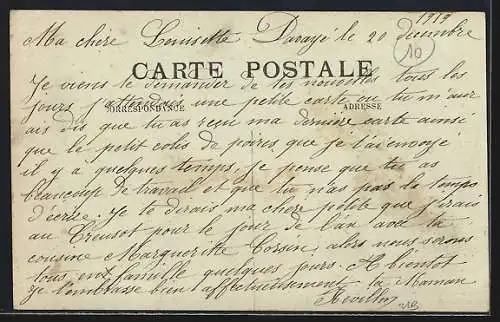 1919
Ma chère Louisette Daray le 20 décembre
10
CARTE POSTALE
Je viens te demander de tes nouvelles tous les
CORRESPONDANCE
ADRESSE
jours j'attendais une petite carte ou tu m'aur
ais dis que tu as reçu ma dernière carte ainsi
que le petit colis de poires que je t'ai envoyé
il y a quelques temps. je pense que tu as
beaucoup de travail et que tu n'as pas le temps
d'écrire. Je te dirais ma chère petite que j'irais
au Creusot pour le jour de l'an avec ta
cousine Marguerite Corsin alors nous serons
tous en famille quelques jours. A bientot
je t'embrasse bien affectueusement ta Maman
Revillon